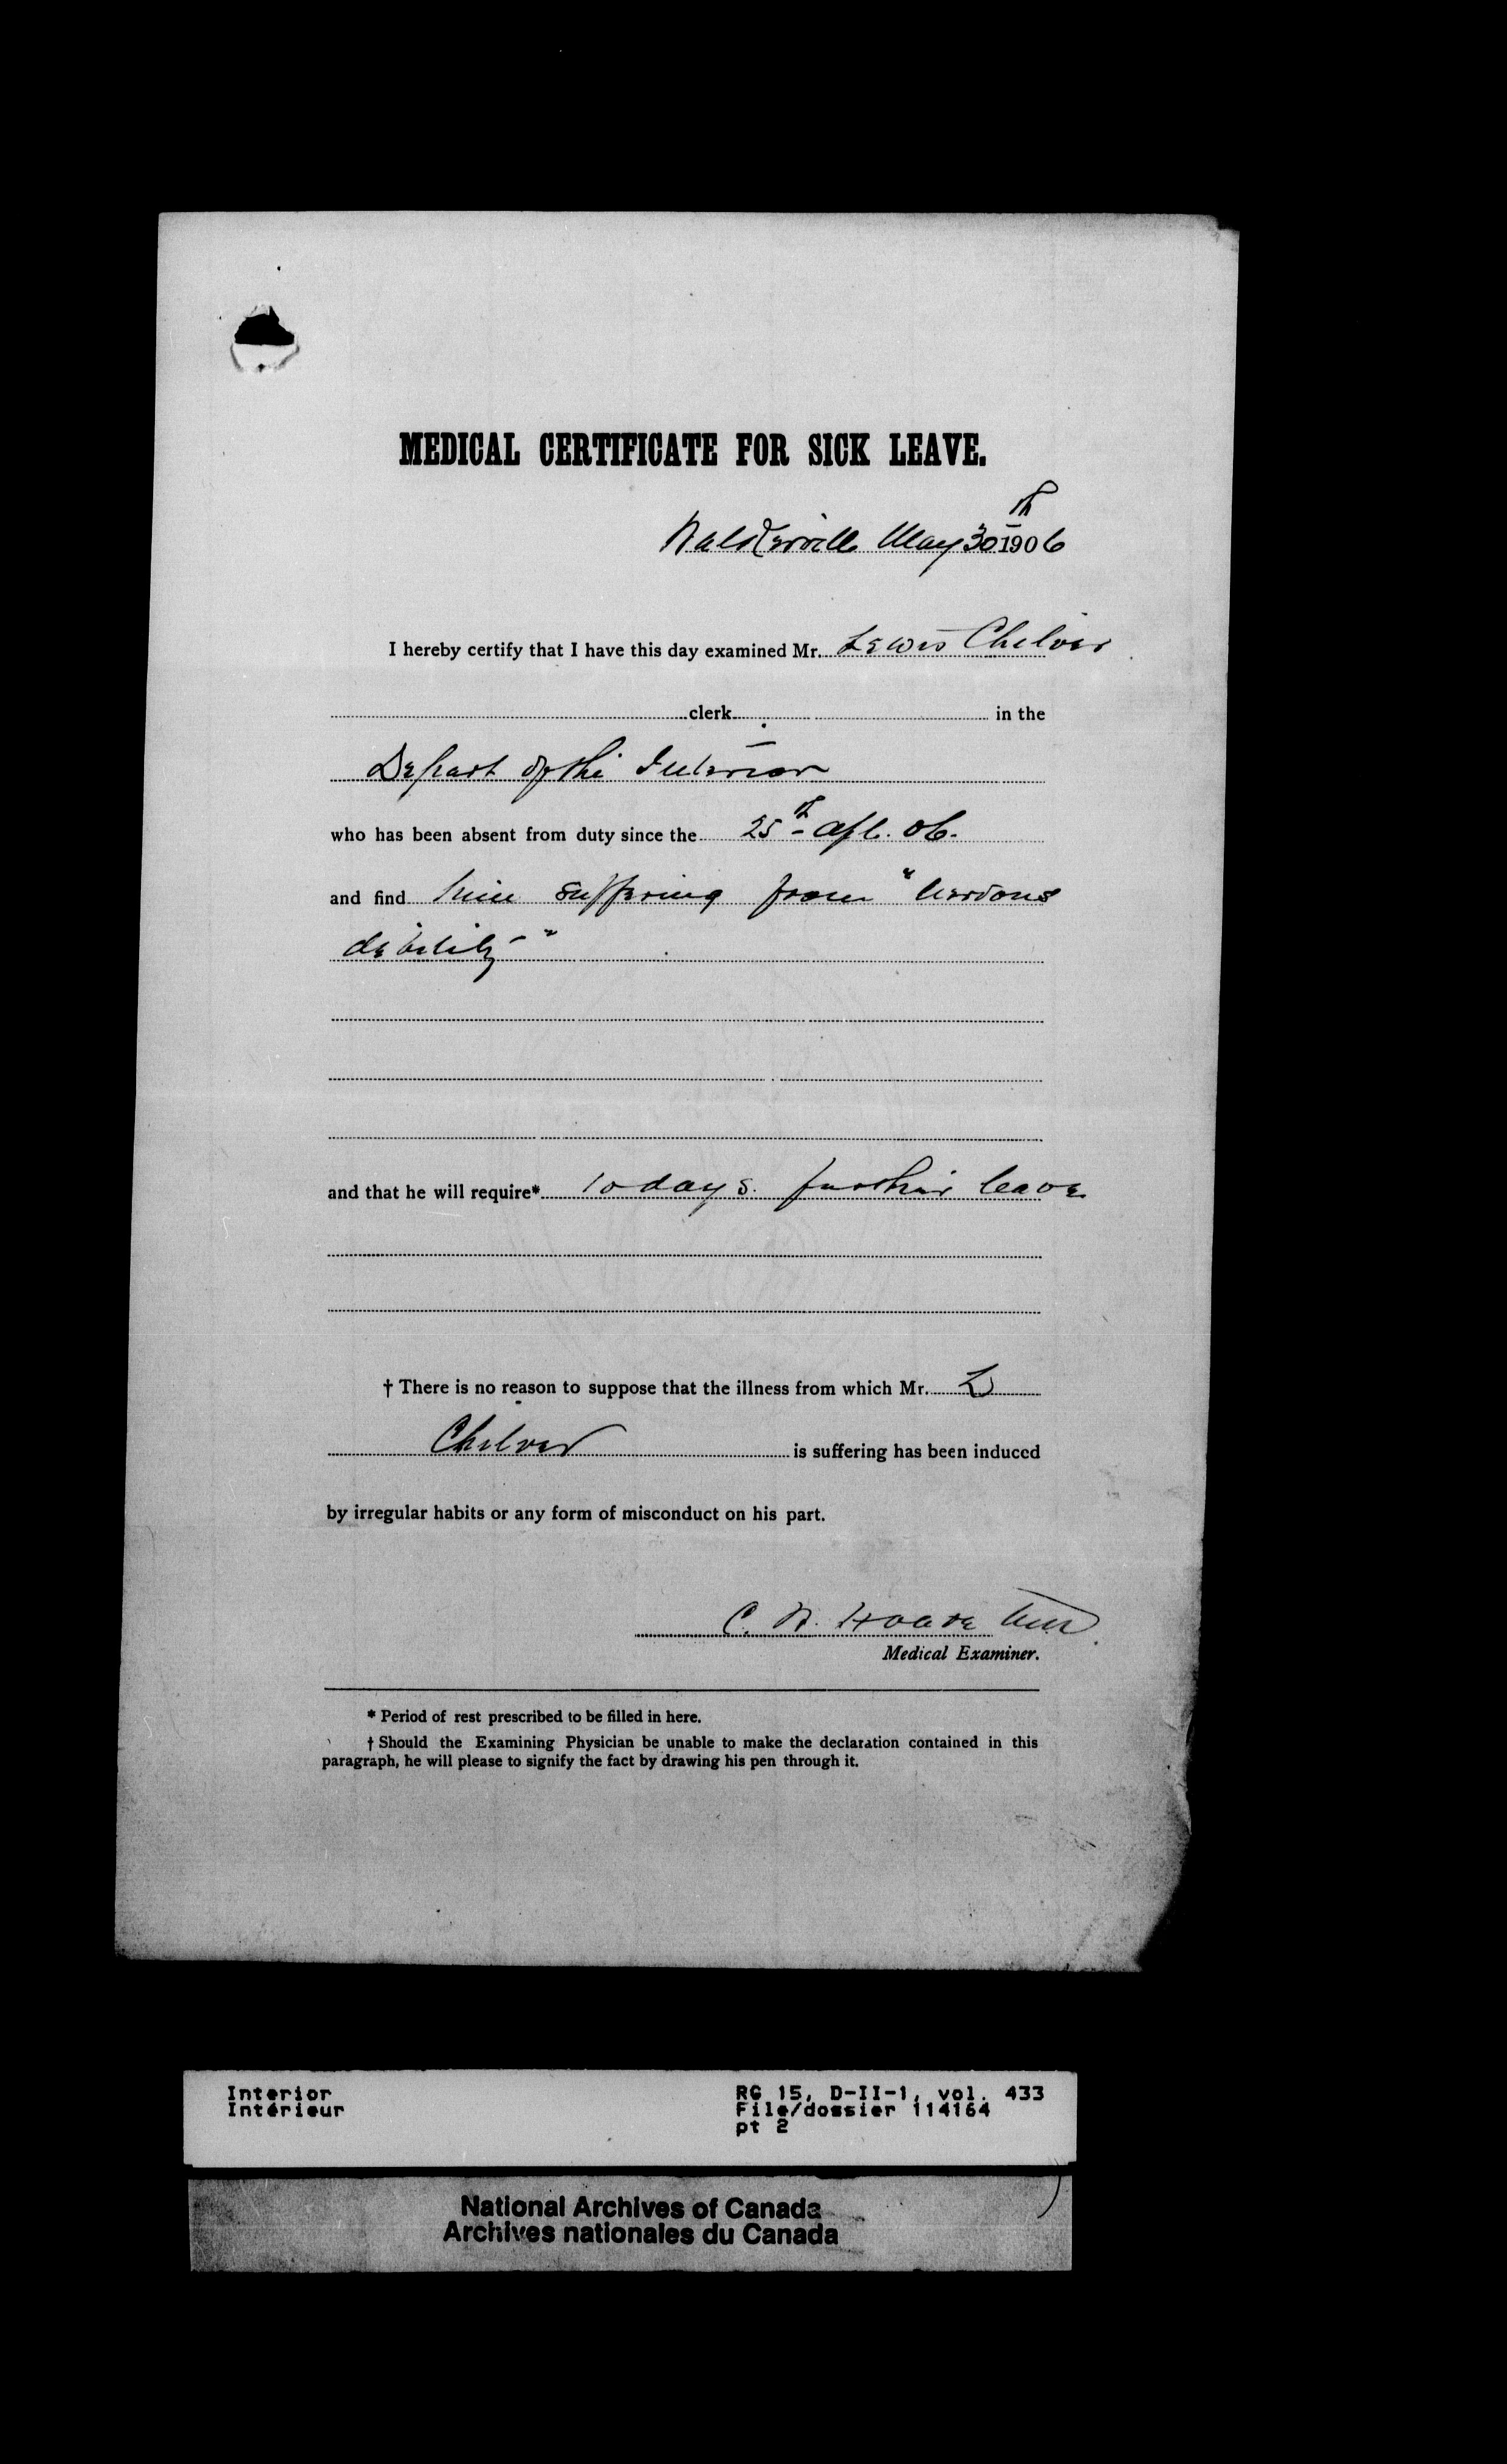 MEDICAL CERTIFICATE FOR SICK LEAVE.
Walkerville May 30th 1906
I hereby certify that I have this day examined Mr. Lewis Chilver
clerk in the
Depart of the Interior
who has been absent from duty since the 25th apl. 06.
and find him suffering from "Nervous
debility"
and that he will require* 10 days. further leave
† There is no reason to suppose that the illness from which Mr. L
Chilver is suffering has been induced
by irregular habits or any form of misconduct on his part.
C. W. Hoare MD.
Medical Examiner.
* Period of rest prescribed to be filled in here.
† Should the Examining Physician be unable to make the declaration contained in this
paragraph, he will please to signify the fact by drawing his pen through it.
Interior RG 15, D-II-1, vol. 433
Intérieur File/dossier 114164
pt 2
National Archives of Canada
Archives nationales du Canada